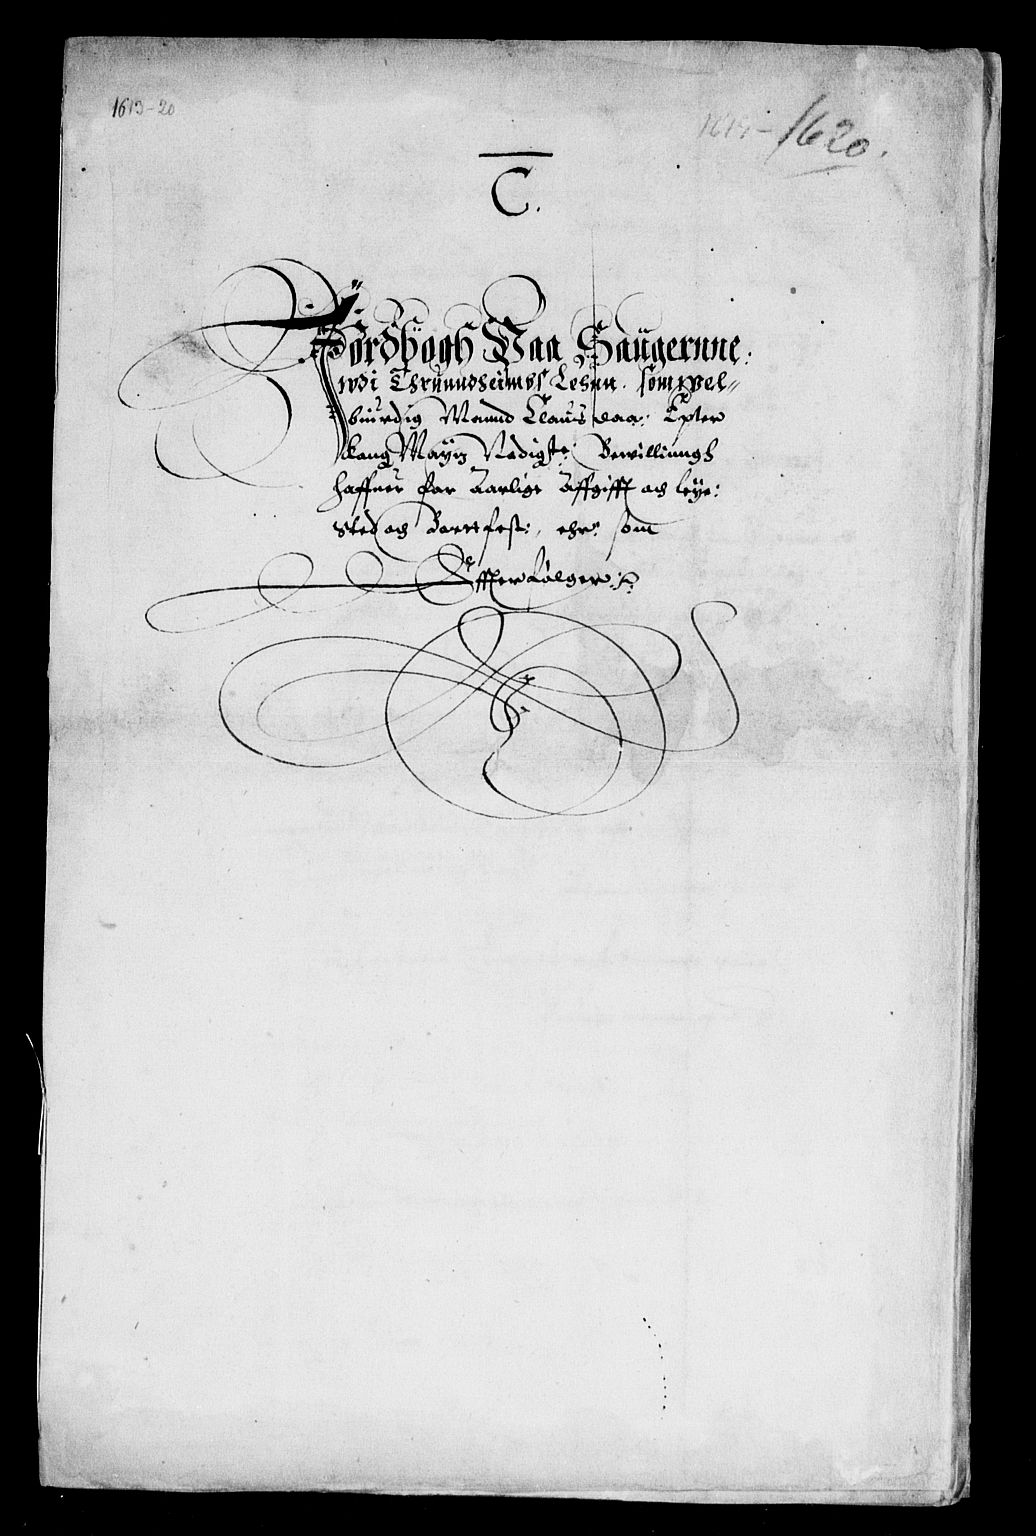 1619-20
1619-1620.
C.
Jordbogh Paa Saugernne
udi Thrunndheimbs Lehnn. som vel-
buurdig Mannd Claus daa: Epter
Kong Mayts Nadigste: Bewillinngh
haffuer for Aarlige Affgifft och leye:
sted och Bortfest:, ehr: som
Effter følger